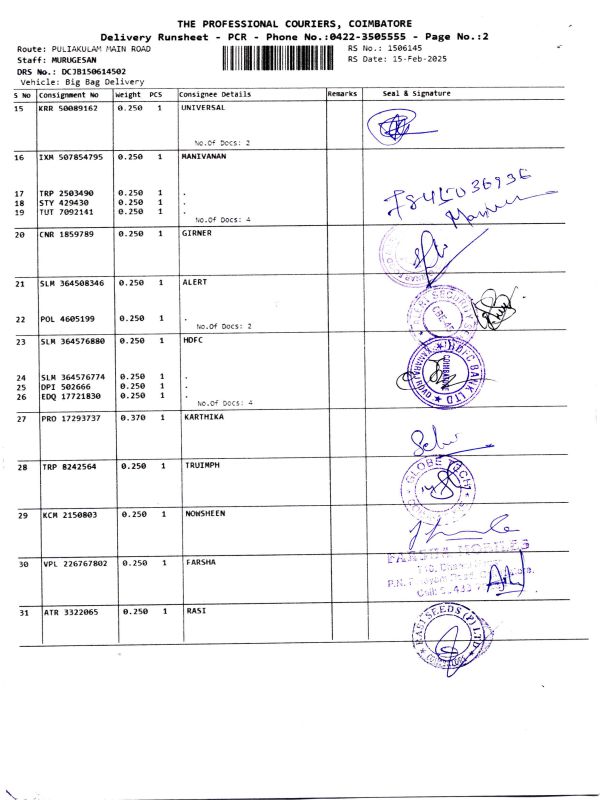 THE PROFESSIONAL COURIERS, COIMBATORE
Delivery Runsheet - PCR - Phone No.:0422-3505555 - Page No.:2
Route: PULIAKULAM MAIN ROAD RS No.: 1506145
Staff: MURUGESAN RS Date: 15-Feb-2025
DRS No.: DCJB150614502
Vehicle: Big Bag Delivery
S No Consignment No Weight PCS Consignee Details Remarks Seal & Signature
15 KRR 50089162 0.250 1 UNIVERSAL
No.Of Docs: 2
16 IXM 507854795 0.250 1 MANIVANAN
17 TRP 2503490 0.250 1 .
18 STY 429430 0.250 1 .
19 TUT 7092141 0.250 1 .
No.Of Docs: 4
20 CNR 1859789 0.250 1 GIRNER
21 SLM 364508346 0.250 1 ALERT
22 POL 4605199 0.250 1 .
No.Of Docs: 2
SECURITY
23 SLM 364576880 0.250 1 HDFC
24 SLM 364576774 0.250 1 .
25 DPI 502666 0.250 1 .
26 EDQ 17721830 0.250 1 .
No.Of Docs: 4
HDFC BANK LTD
COIMBATORE
27 PRO 17293737 0.370 1 KARTHIKA
28 TRP 8242564 0.250 1 TRUIMPH
GLOBE TECH
29 KCM 2150803 0.250 1 NOWSHEEN
30 VPL 226767802 0.250 1 FARSHA
FARSHA MOBILES
31 ATR 3322065 0.250 1 RASI
RASI SEEDS (P) LTD